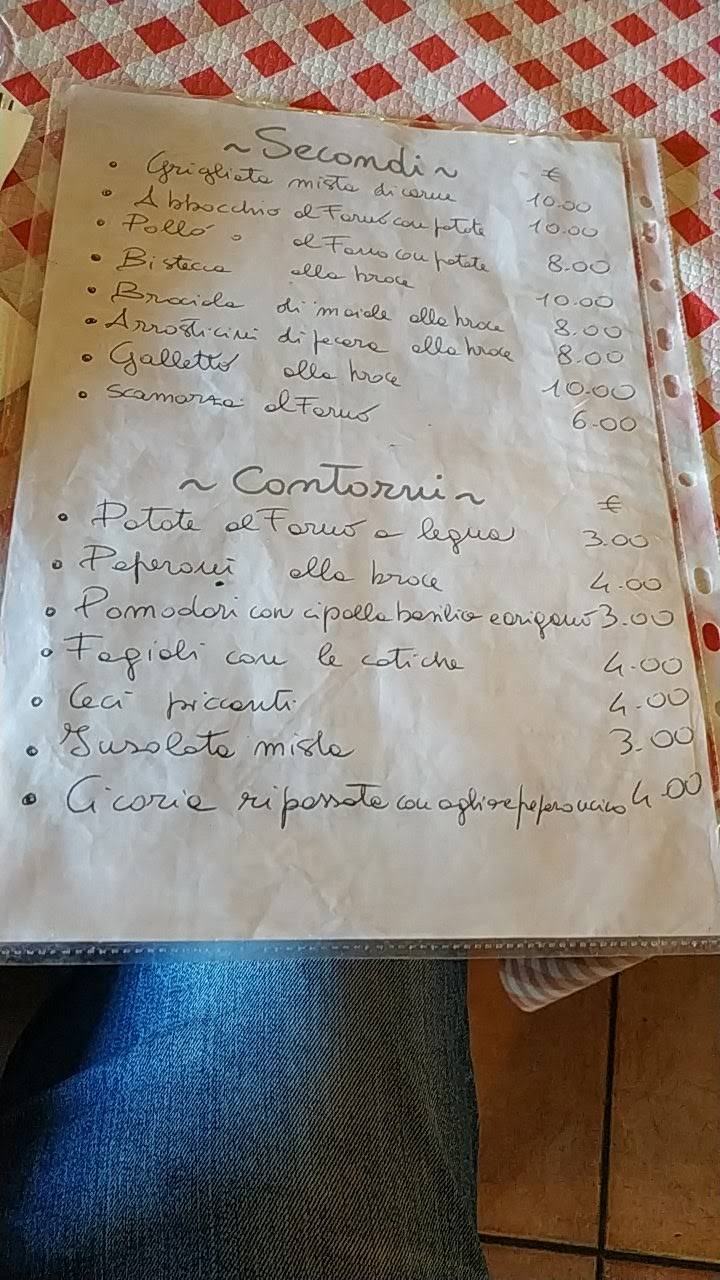 ~ Secondi ~ €
• Grigliata mista di carne 10.00
• Abbacchio al Forno con patate 10.00
• Pollo al Forno con patate 8.00
• Bistecca alla brace 10.00
• Braciola di maiale alla brace 8.00
• Arrosticini di pecora alla brace 8.00
• Galletto alla brace 10.00
• Scamorza al Forno 6.00
~ Contorni ~ €
• Patate al Forno a legna 3.00
• Peperoni alla brace 4.00
• Pomodori con cipolla basilico e origano 3.00
• Fagioli con le cotiche 4.00
• Ceci piccanti 4.00
• Insalata mista 3.00
• Cicoria ripassata con aglio e peperoncino 4.00